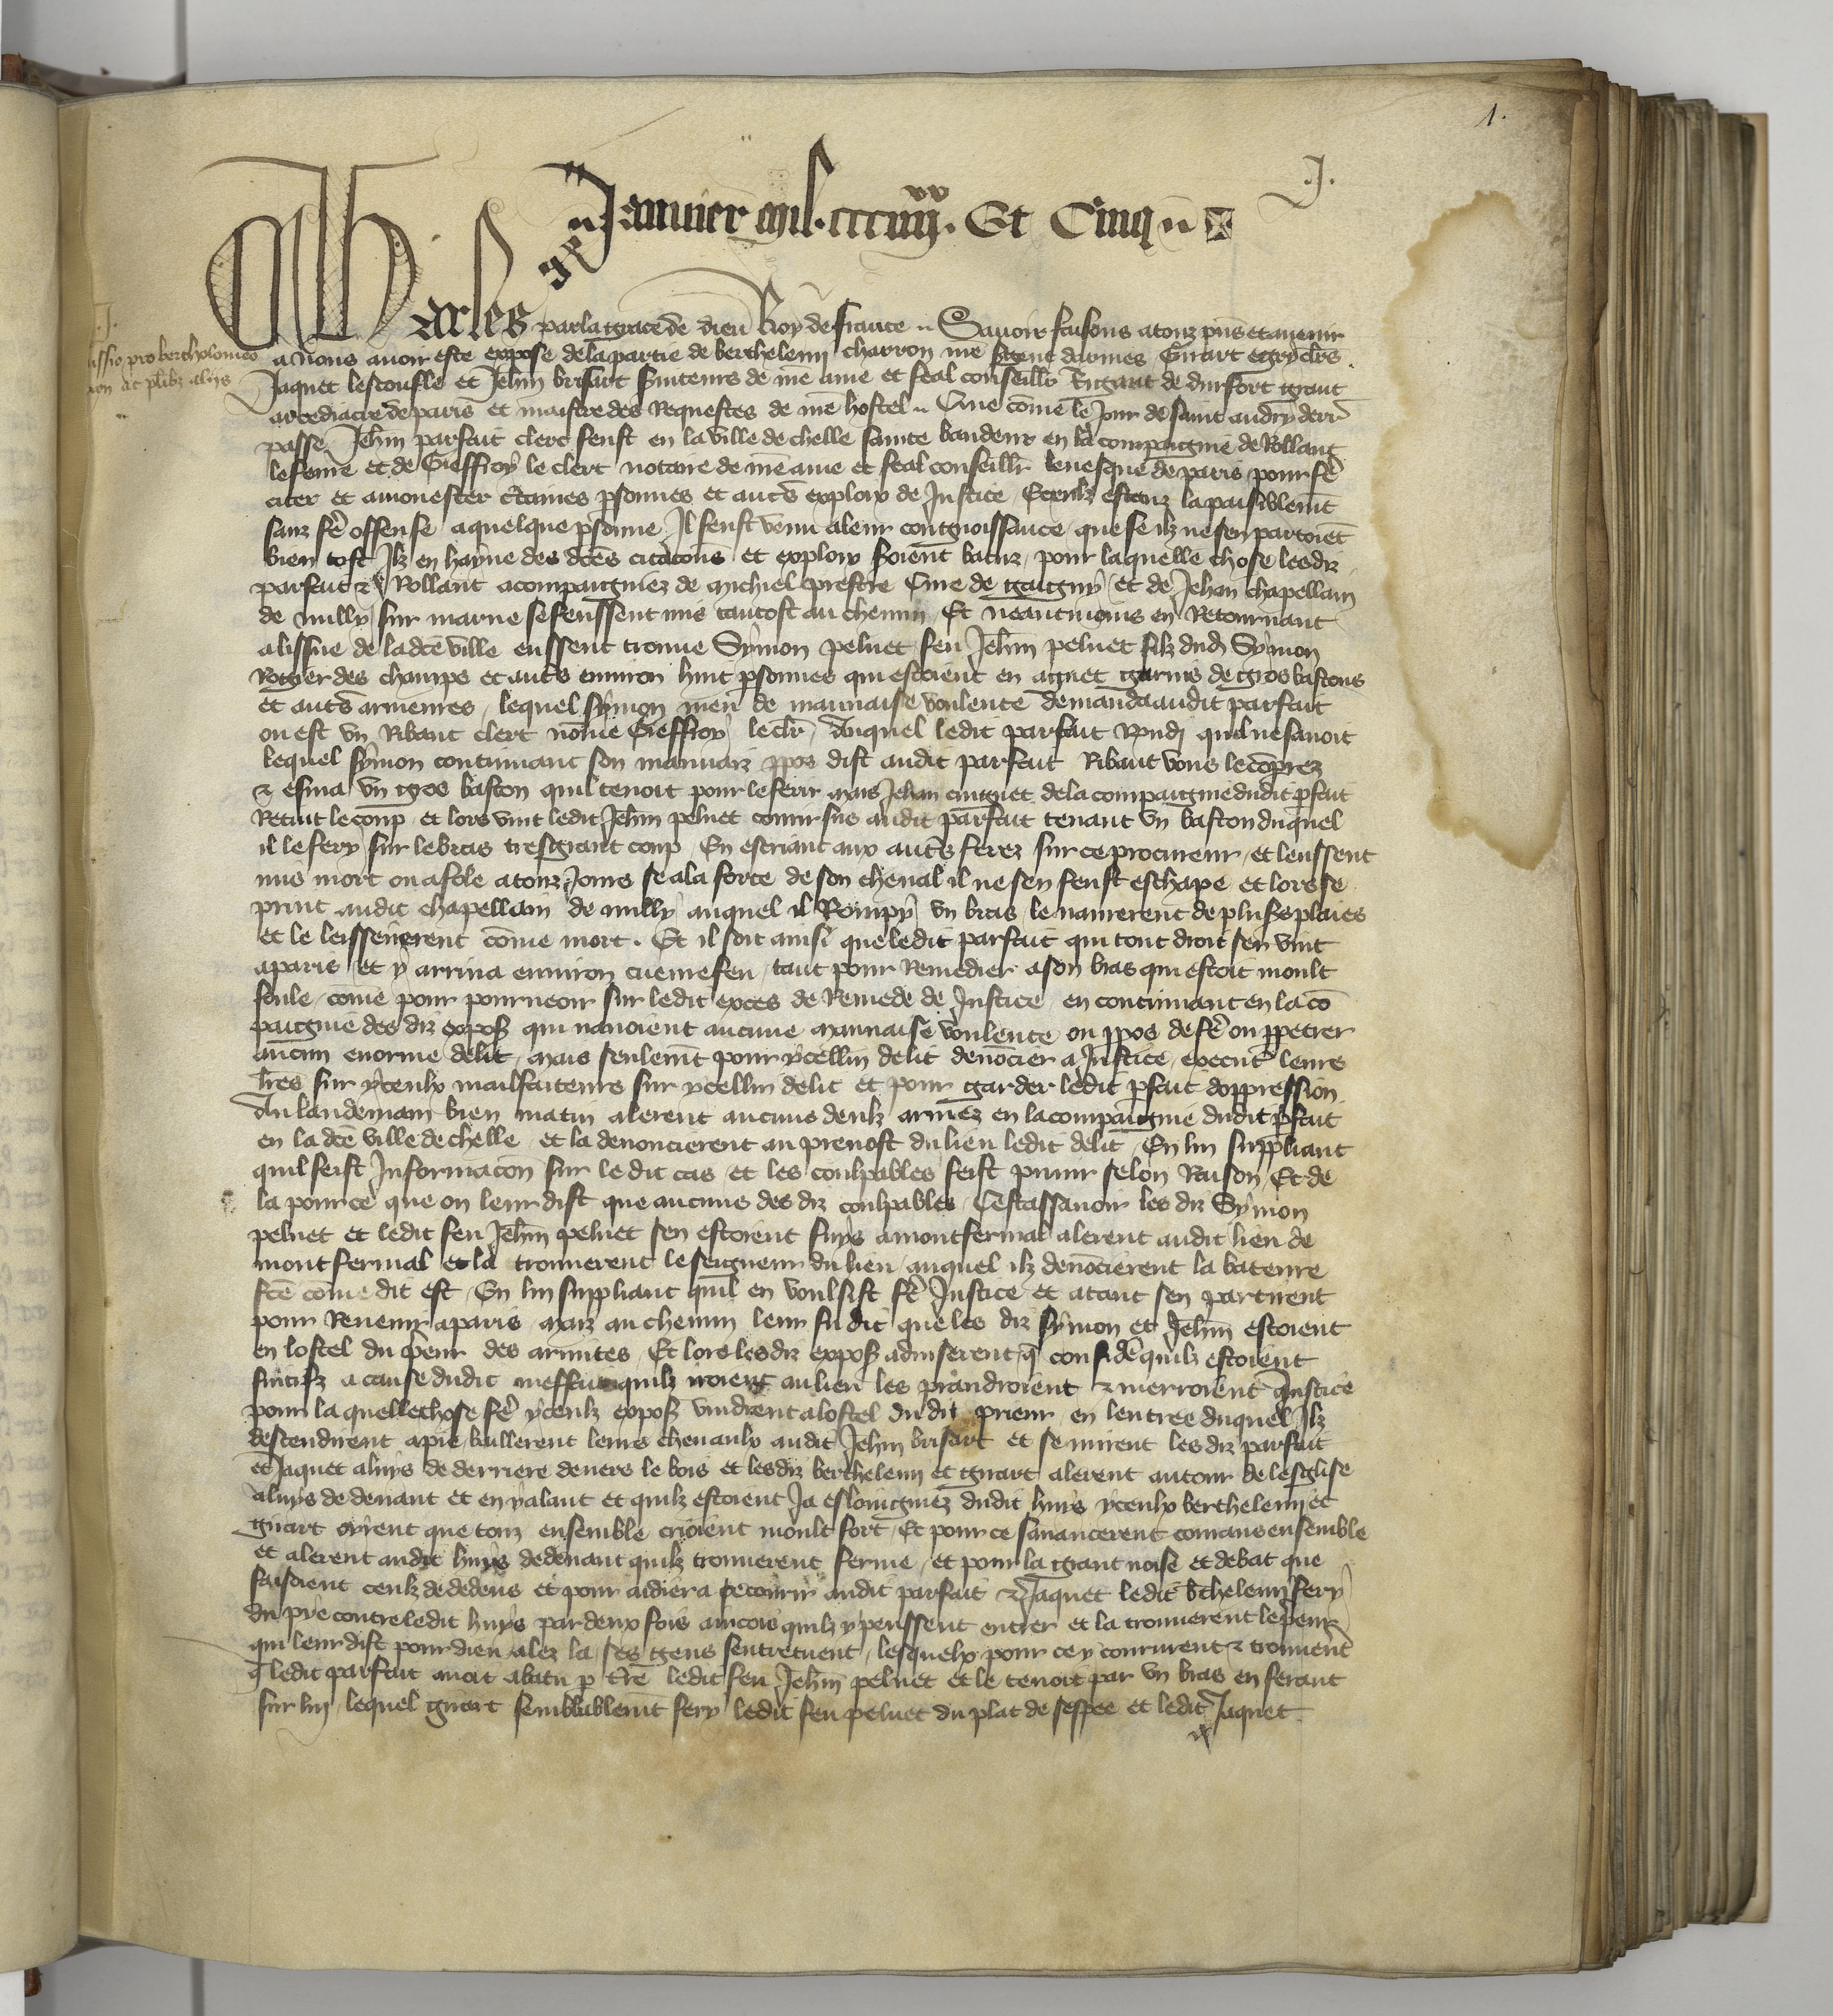 1.
.J.
Januier mil. ccc iiii xx. Et Cinq
Charles par la grace de dieu Roy de france Sauoir faisons a touz pns et auenir
a nous auoir este expose de la partie de berthelemi charron nre sgent darmes Girart
Jaquet lescoufle et Jehan brisart seruiteurs de nre ame et feal conseillr Rigaut de durfort grant
arcediacre de paris et maistre des Requestes de nre hostel Que come le Jour de saint andry derr
passe Jehan parfait clerc feust en la ville de chelle sainte baudeur en la compaignie de Rollant
lesenne et de Gieffroy le clerc notaire de nre ame et feal conseillr leuesque de paris pour fe
citer et amonester ctaines psonnes et auts explois de Justice Eceulz estanz la paisiblemt
sanz fe offense a quelque psonne Il feust venu a leur congnoissance que se ilz ne sen partoiet
bien tost Ilz en hayne des dces citacons et explois seroient batuz pour laquelle chose lesdiz
parfait & Rollant acompaigniez de michiel prestre Cure de gaigny et de Jehan chapellain
de nully sur marne se feussent mis tantost au chemin Et neantmoins en Retournant
a lissue de la dce ville eussent trouue Symon peluet feu Jehan peluet filz dud Symon
Rogier des champs et auts enuiron huit psonnes qui estoient en aguet garnis de gros bastons
et auts armeures lequel symon meu de mauuaise voulente demanda audit parfait
ou est vn Ribaut clerc nome Gieffroy le clr Auquel ledit parfait Rpondi quil ne sauoit
lequel symon continuant son mauuaiz ppos dist audit parfait Ribaut vous le coprez
& esma vn gros baston quil tenoit pour le ferir mais Jehan de la compaignie dudit pfait
Retint le coup et lors vint ledit Jehan peluet courir sus audit parfait tenant vn baston duquel
il le fery sur le bras tresgrant coup En escriant aux auts ferez sur ce procureur et leussent
mis mort ou afole a touz Jours se a la force de son cheual il ne sen feust eschape et lors se
print audit chapellain de nully auquel il Rompy vn bras le naurerent de plusrs plaies
et le leisserent come mort. Et il soit ainsi que ledit parfait qui tout droit sen vint
a paris et y arriua enuiron cueurefeu tant pour Remedier a son bras qui estoit moult
foule come pour pourueoir sur ledit exces de Remede de Justice en continuant en la co
paignie des diz exposs qui nauoient aucune mauuaise voulente ou ppos de fe ou ppetrer
aucun enorme delit mais seulemt pour ycellui delit denocier a Justice executr leurs
lres sur yceulx malfaiteurs sur ycellui delit et pour garder ledit pfait doppression
Au landemain bien matin alerent aucuns deulz armez en la compaignie dudit pfait
en la dce ville de chelle et la denoncierent au preuost du lieu ledit delit En lui suppliant
quil feist Informacon sur ledit cas et les coulpables feist punir selon Raison Et de
la pour ce que on leur dist que aucuns des diz coulpables Cestassauoir les diz Symon
peluet et ledit feu Jehan peluet sen estoient fuys a montfermal alerent audit lieu de
montfermal et la trouuerent le seigneur du lieu auquel ilz denocierent la bateure
fce come dit est En lui suppliant quil en voulsist fe Justice et atant sen partirent
pour Reuenir a paris maiz au chemin leur fu dit que les diz symon et Jehan estoient
en lostel du peur des armites Et lors lesdiz exposs aduiserent q conside quilz estoient
fuitifz a cause dudit meffait quilz iroient au lieu les prandroient & merroient a Justice
pour laquelle chose fe yceulz exposs vindrent a lostel du dit prieur en lentree duquel Ilz
descendirent a pie baillerent leurs cheuaulx audit Jehan brisart et se mirent les diz parfait
et Jaquet a luys de derriere deuers le bois et lesdiz berthelemi et girart alerent autour de lesglise
a luys de deuant et en y alant et quilz estoient Ja esloingniez dudit huys yceulx berthelemi et
girart oyrent que touz ensemble crioient moult fort Et pour ce sauancerent courans ensemble
et alerent audit huys de deuant quilz trouuerent ferme et pour la grant noise et debat que
faisoient ceulz de dedens et pour aidier a secourir audit parfait & Jaquet ledit bthelemi fery
du pie contre ledit huys par deux fois aincois quilz y peussent entrer et la trouuerent le peur
qui leur dist pour dieu alez la ses gens sentretuent lesquelx pour ce y coururent & trouuert
q ledit parfait auoit abatu p tre ledit feu Jehan peluet et le tenoit par vn bras en ferant
sur lui lequel girart semblablemt fery ledit feu peluet du plat de sespee et ledit Jaquet
issio pro bertholomeo
ac plibz aliis